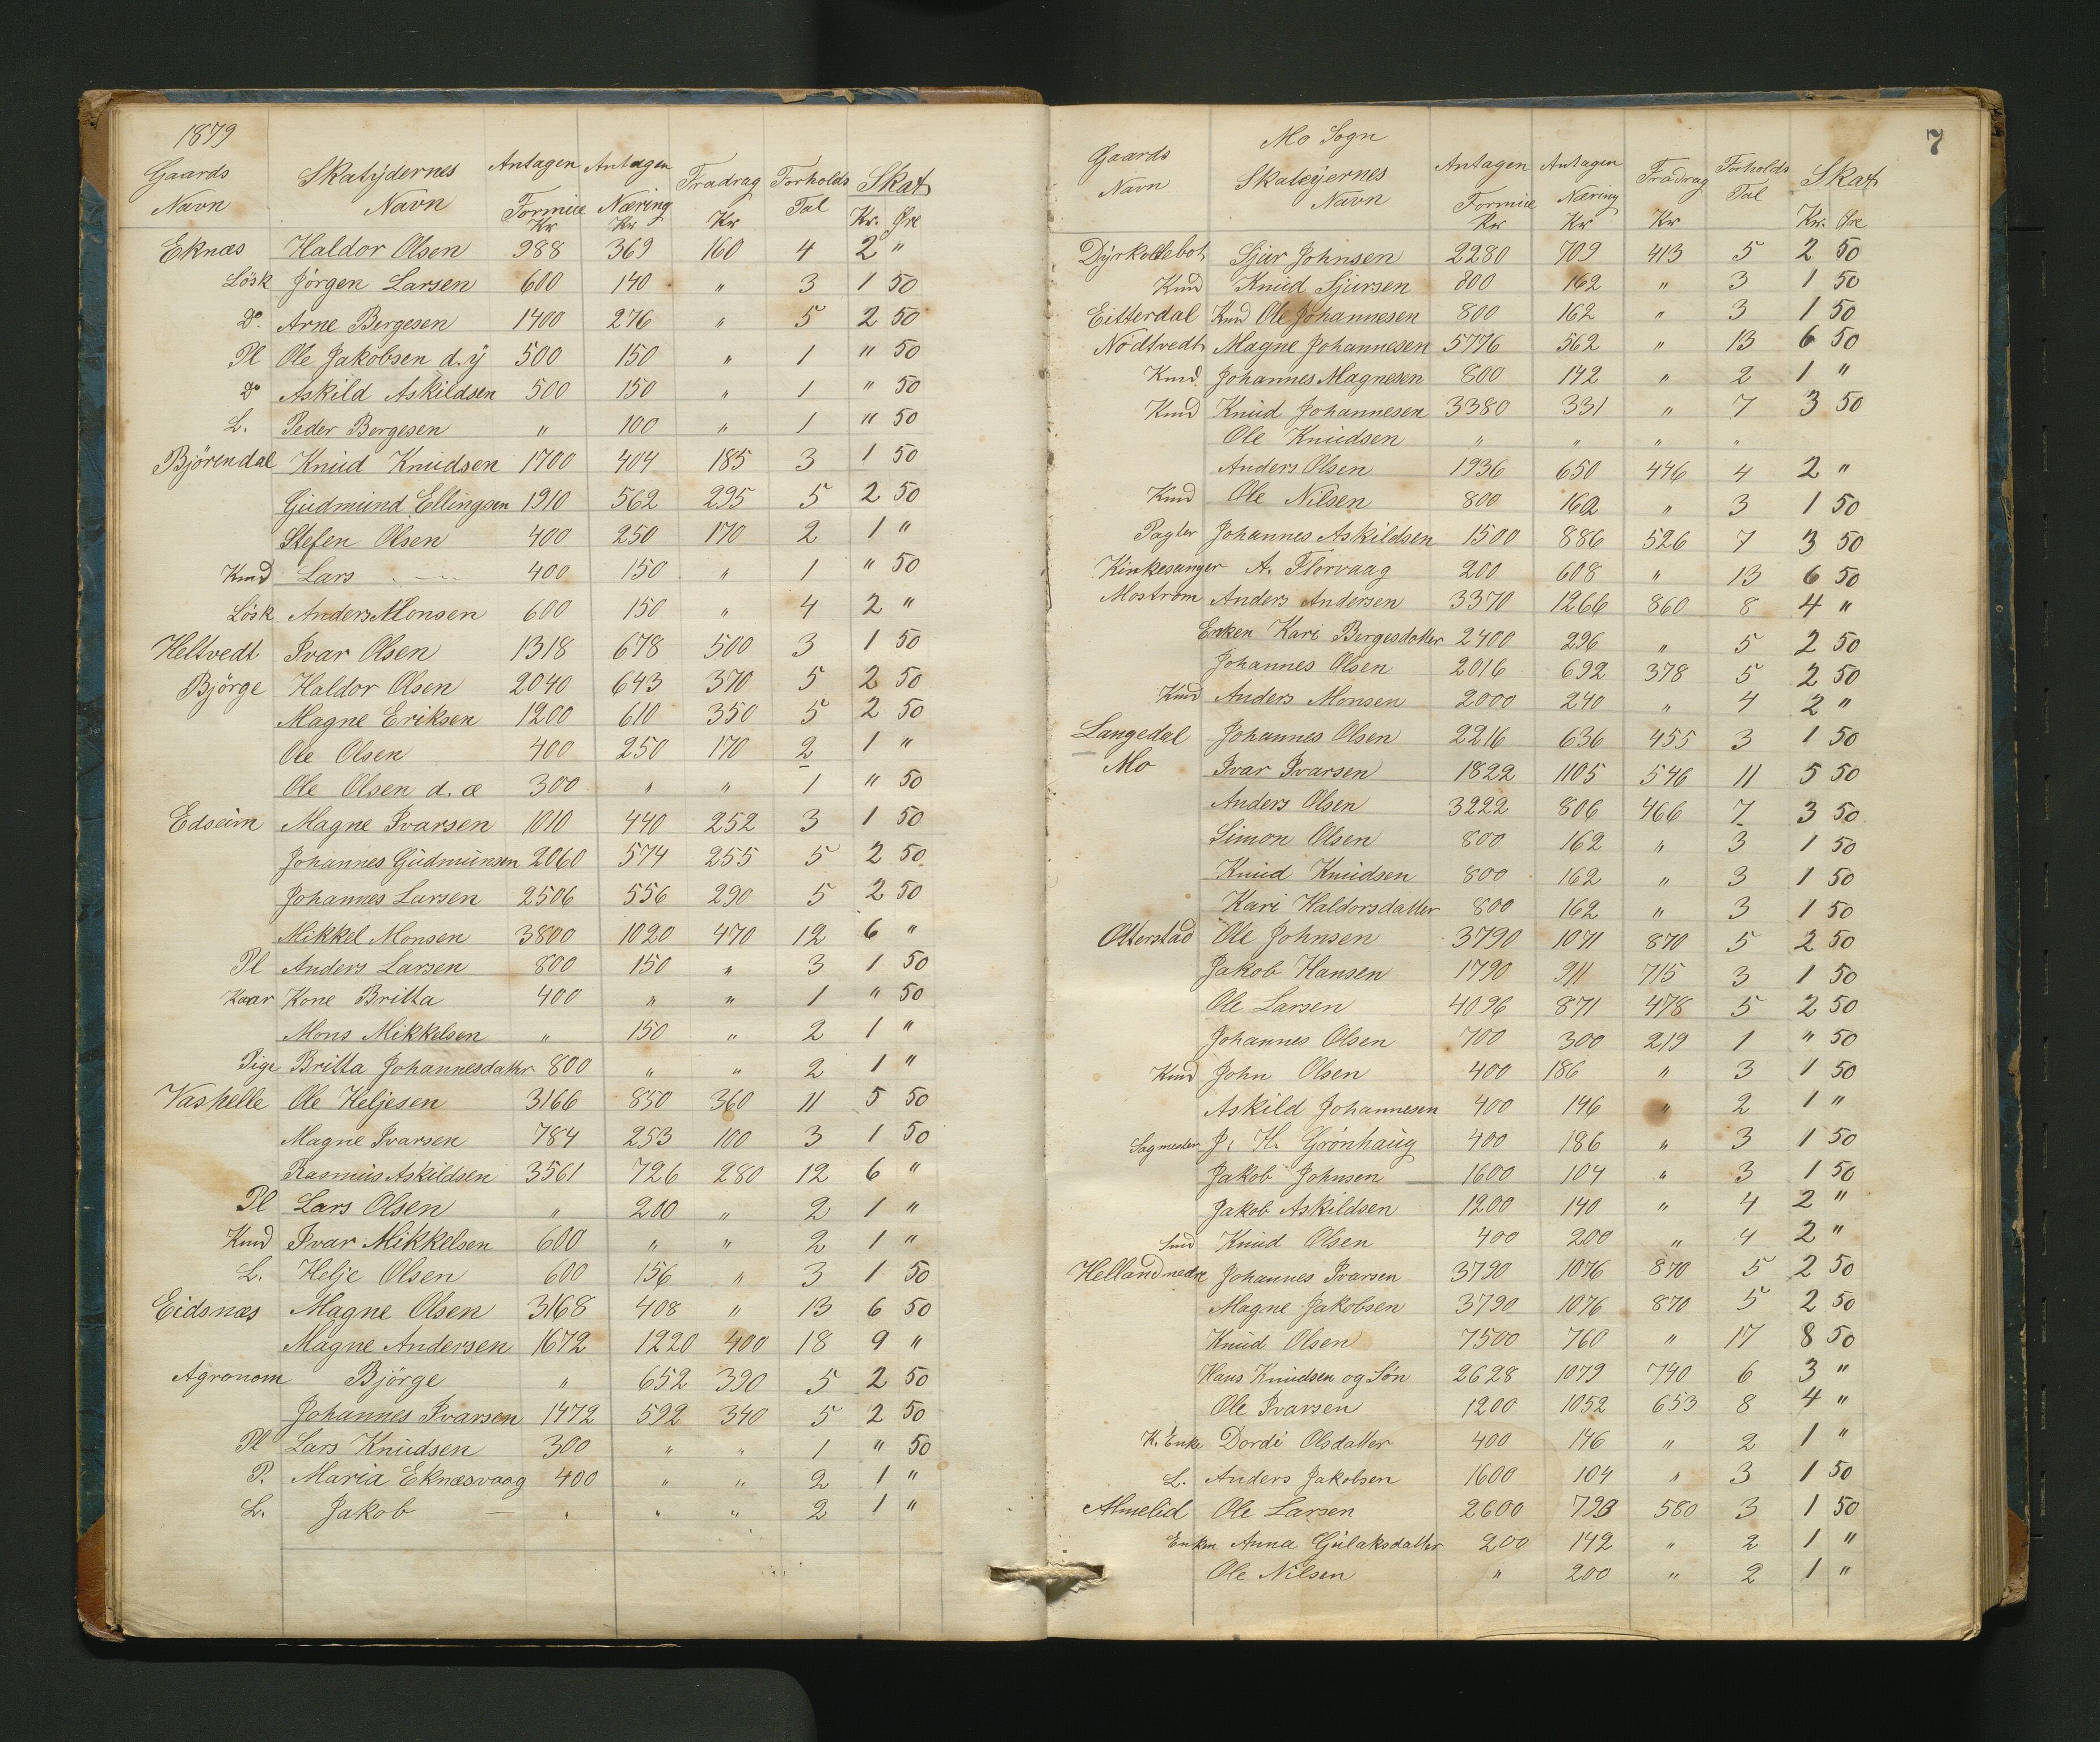 1879
Gaards Navn Skatydernes Navn Antagen Formue Kr Antagen Næring Kr Fradrag Kr Forholds Tal Skat Kr. Øre
Eknæs Haldor Olsen 988 369 160 4 2 "
Lösk Jörgen Larsen 600 140 " 3 1 50
Do. Arne Bergesen 1400 276 " 5 2 50
Pl Ole Jakobsen d.ÿ 500 150 " 1 " 50
Do Askild Askildsen 500 150 " 1 " 50
L. Peder Bergesen " 100 " 1 " 50
Björendal Knud Knudsen 1700 404 185 3 1 50
Gudmund Ellingsen 1910 562 295 5 2 50
Stefen Olsen 400 250 170 2 1 "
Kmd Lars 400 150 " 1 " 50
Lösk Anders Monsen 600 150 " 4 2 "
Heltvedt Ivar Olsen 1318 678 500 3 1 50
Björge Haldor Olsen 2040 643 370 5 2 50
Magne Eriksen 1200 610 350 5 2 50
Ole Olsen 400 250 170 2 1 "
Ole Olsen d. æ 300 " " 1 " 50
Edseim Magne Ivarsen 1010 440 252 3 1 50
Johannes Gudmunsen 2060 574 255 5 2 50
Johannes Larsen 2506 556 290 5 2 50
Mikkel Monsen 3800 1020 470 12 6 "
Pl Anders Larsen 800 150 " 3 1 50
Kaar Kone Britta 400 " " 1 " 50
Mons Mikkelsen " 150 " 2 1 "
Pige Britta Johannesdatter 800 " " 2 1 "
Vashelle Ole Heljesen 3166 850 360 11 5 50
Magne Ivarsen 784 253 100 3 1 50
Rasmus Askildsen 3561 726 280 12 6 "
Pl Lars Olsen " 200 " 2 1 "
Kmd Ivar Mikkelsen 600 " " 2 1 "
L. Helje Olsen 600 156 " 3 1 50
Eidsnæs Magne Olsen 3168 408 " 13 6 50
Magne Andersen 1672 1220 400 18 9 "
Agronom Björge " 652 390 5 2 50
Johannes Ivarsen 1472 592 340 5 2 50
Pl Lars Knudsen 300 " " 1 " 50
P. Maria Eknæsvaag 400 " " 2 1 "
L. Jakob — " " " 2 1 "
7
Mo Sogn
Gaards Navn Skateyernes Navn Antagen Formue Kr Antagen Næring Kr Fradrag Kr Forholds Tal Skat Kr. Øre
Dÿrkolbotn Sjur Johnsen 2280 709 413 5 2 50
Kmd Knud Sjursen 800 162 " 3 1 50
Eitterdal Kmd Ole Johannesen 800 162 " 3 1 50
Nödtvedt Magne Johannesen 5776 562 " 13 6 50
Kmd. Johannes Magnesen 800 142 " 2 1 "
Kmd Knud Johannesen 3380 331 " 7 3 50
Ole Knudsen " " " "
Anders Olsen 1936 650 446 4 2 "
Kmd Ole Nilsen 800 162 " 3 1 50
Pagter Johannes Askildsen 1500 886 526 7 3 50
Kirkesanger A. Florvaag 200 608 " 13 6 50
Mostrøm Anders Andersen 3370 1266 860 8 4 "
Enken Kari Bergesdatter 2400 296 " 5 2 50
Johannes Olsen 2016 692 378 5 2 50
Kmd Anders Monsen 2000 240 " 4 2 "
Langedal Johannes Olsen 2216 636 455 3 1 50
Mo Ivar Ivarsen 1822 1105 546 11 5 50
Anders Olsen 3222 806 466 7 3 50
Simon Olsen 800 162 " 3 1 50
Knud Knudsen 800 162 " 3 1 50
Kari Haldorsdatter 800 162 " 3 1 50
Otterstad Ole Johnsen 3790 1071 870 5 2 50
Jakob Hansen 1790 911 715 3 1 50
Ole Larsen 4096 871 478 5 2 50
Johannes Olsen 700 300 219 1 " 50
Kmd John Olsen 400 186 " 3 1 50
Askild Johannesen 400 146 " 2 1 "
Sagmester J. H. Grønhaug 400 186 " 3 1 50
Jakob Johnsen 1600 104 " 3 1 50
Jakob Askildsen 1200 140 " 4 2 "
Smd Knud Olsen 400 200 " 4 2 "
Helland nedre Johannes Ivarsen 3790 1076 870 5 2 50
Magne Jakobsen 3790 1076 870 5 2 50
Knud Olsen 7500 760 " 17 8 50
Hans Knudsen og Sön 2628 1079 740 6 3 "
Ole Ivarsen 1200 1052 653 8 4 "
K. Enke Dordi Olsdatter 400 146 " 2 1 "
L. Anders Jakobsen 1600 104 " 3 1 50
Almelid Ole Larsen 2600 793 580 3 1 50
Enken Anna Gulaksdatter 200 142 " 2 1 "
Ole Nilsen " 200 " 2 1 "